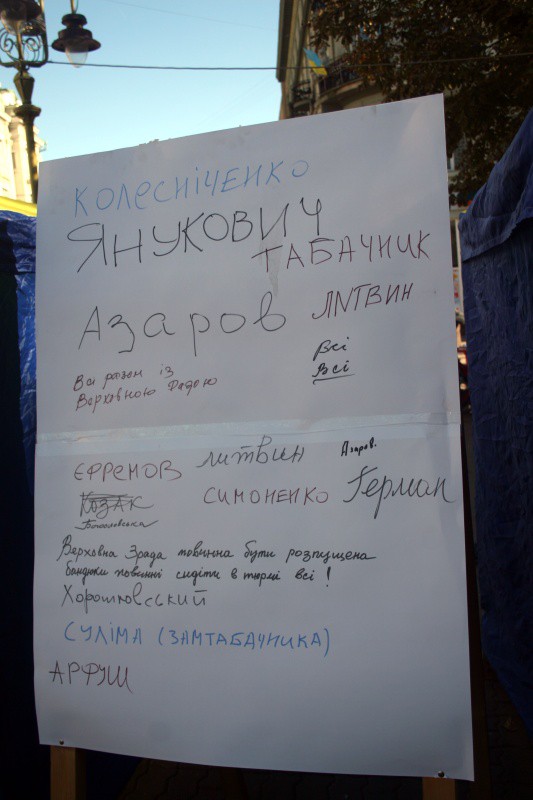 КОЛЕСНІЧЕНКО
ЯНУКОВИЧ
ТАБАЧНИК
Азаров
ЛИТВИН
Всі разом із
Верховною Радою
Всі
Всі
ЄФРЕМОВ
ЛИТВИН
Азаров.
КОЗАК
Богословська
СИМОНЕНКО
Герман
Верховна Зрада повинна бути розпущена
бандюки повинні сидіти в тюрмі всі!
Хорошковський
СУЛІМА (ЗАМТАБАЧНИКА)
АРФУШ